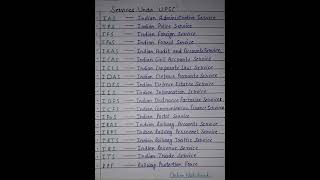 Services Under UPSC
IAS — Indian Administrative Service
IPS — Indian Police Service
IFS — Indian Foreign Service
IFoS — Indian Forest Service
IAAS — Indian Audit and Accounts Service
ICAS — Indian Civil Accounts Service
ICLS — Indian Corporate Law Service
IDAS — Indian Defence Accounts Service
IDES — Indian Defence Estates Service
IIS — Indian Information Service
IOFS — Indian Ordnance Factories Service
ICFS — Indian Communication Finance Service
IPoS — Indian Postal Service
IRAS — Indian Railway Accounts Service
IRPS — Indian Railway Personnel Service
IRTS — Indian Railway Traffic Service
IRS — Indian Revenue Service
ITS — Indian Trade Service
RPF — Railway Protection Force